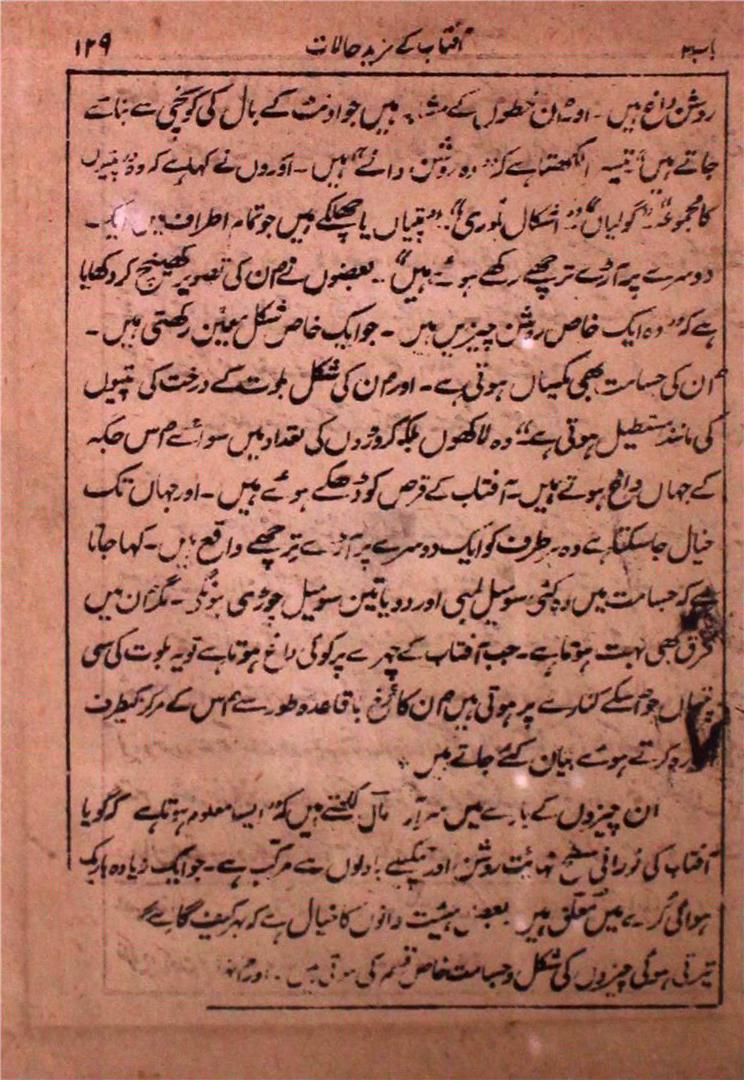 باب ۲ آفتاب کے مزید حالات ۱۲۹
روشن داغ ہیں ۔ اور ان خطوں کے مشابہ ہیں جو اونٹ کے بال کی کونچی سے بنائے
جاتے ہیں" لکھتا ہے کہ "وہ روشن دانے" ہیں ۔ اوروں نے کہا ہے کہ وہ "پتیوں
کا مجموعہ" ۔ "گولیاں" "اشکال نوری" ۔ "پتیاں یا چھلکے ہیں جو تمام اطراف میں ایک
دوسرے پر آڑے ترچھے رکھے ہوئے ہیں" ۔ بعضوں نے ان کی تصویر کھینچ کر دکھایا
ہے کہ "وہ ایک خاص روشن چیزیں ہیں ۔ جو ایک خاص شکل معین رکھتی ہیں ۔
ان کی جسامت بھی یکساں ہوتی ہے ۔ اور ان کی شکل بلوت کے درخت کی پتیوں
کی مانند مستطیل ہوتی ہے" وہ لاکھوں بلکہ کروڑوں کی تعداد میں سوائے اس جگہ
کے جہاں داغ ہوتے ہیں ۔ آفتاب کے قرص کو ڈھکے ہوئے ہیں ۔ اور جہاں تک
خیال جا سکتا ہے وہ ہر طرف کو ایک دوسرے پر آڑے ترچھے واقع ہیں ۔ کہا جاتا
ہے کہ جسامت میں وہ کئی سو میل لمبی اور دو یا تین سو میل چوڑی ہونگی ۔ مگر ان میں
فرق بھی بہت ہوتا ہے ۔ جب آفتاب کے چہرے پر کوئی داغ ہوتا ہے تو یہ بلوت کی سی
پتیاں جو اسکے کنارے پر ہوتی ہیں ان کا رخ باقاعدہ طور سے اس کے مرکز کیطرف
اشارہ کرتے ہوئے بیان کئے جاتے ہیں ۔
ان چیزوں کے بارے میں لکھتے ہیں کہ "ایسا معلوم ہوتا ہے کہ گویا
آفتاب کی نورانی سطح نہائت روشن اور چمکیلے بادلوں سے مرکب ہے ۔ جو ایک زیادہ باریک
ہوائی کُرے میں معلق ہیں بعض ہیئت دانوں کا خیال ہے کہ بہر کیف
تیرتی ہوئی چیزوں کی شکل و جسامت خاص قسم کی ہوتی ہیں ۔ اور